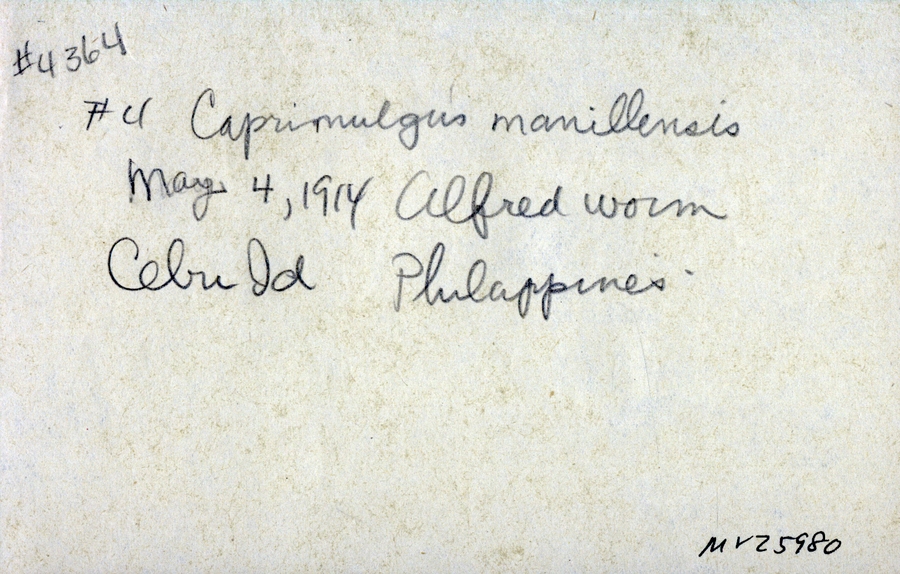 #4364
#4 Caprimulgus manillensis
May 4, 1914 Alfred Worm
Cebu Id Philappines
MVZ5980